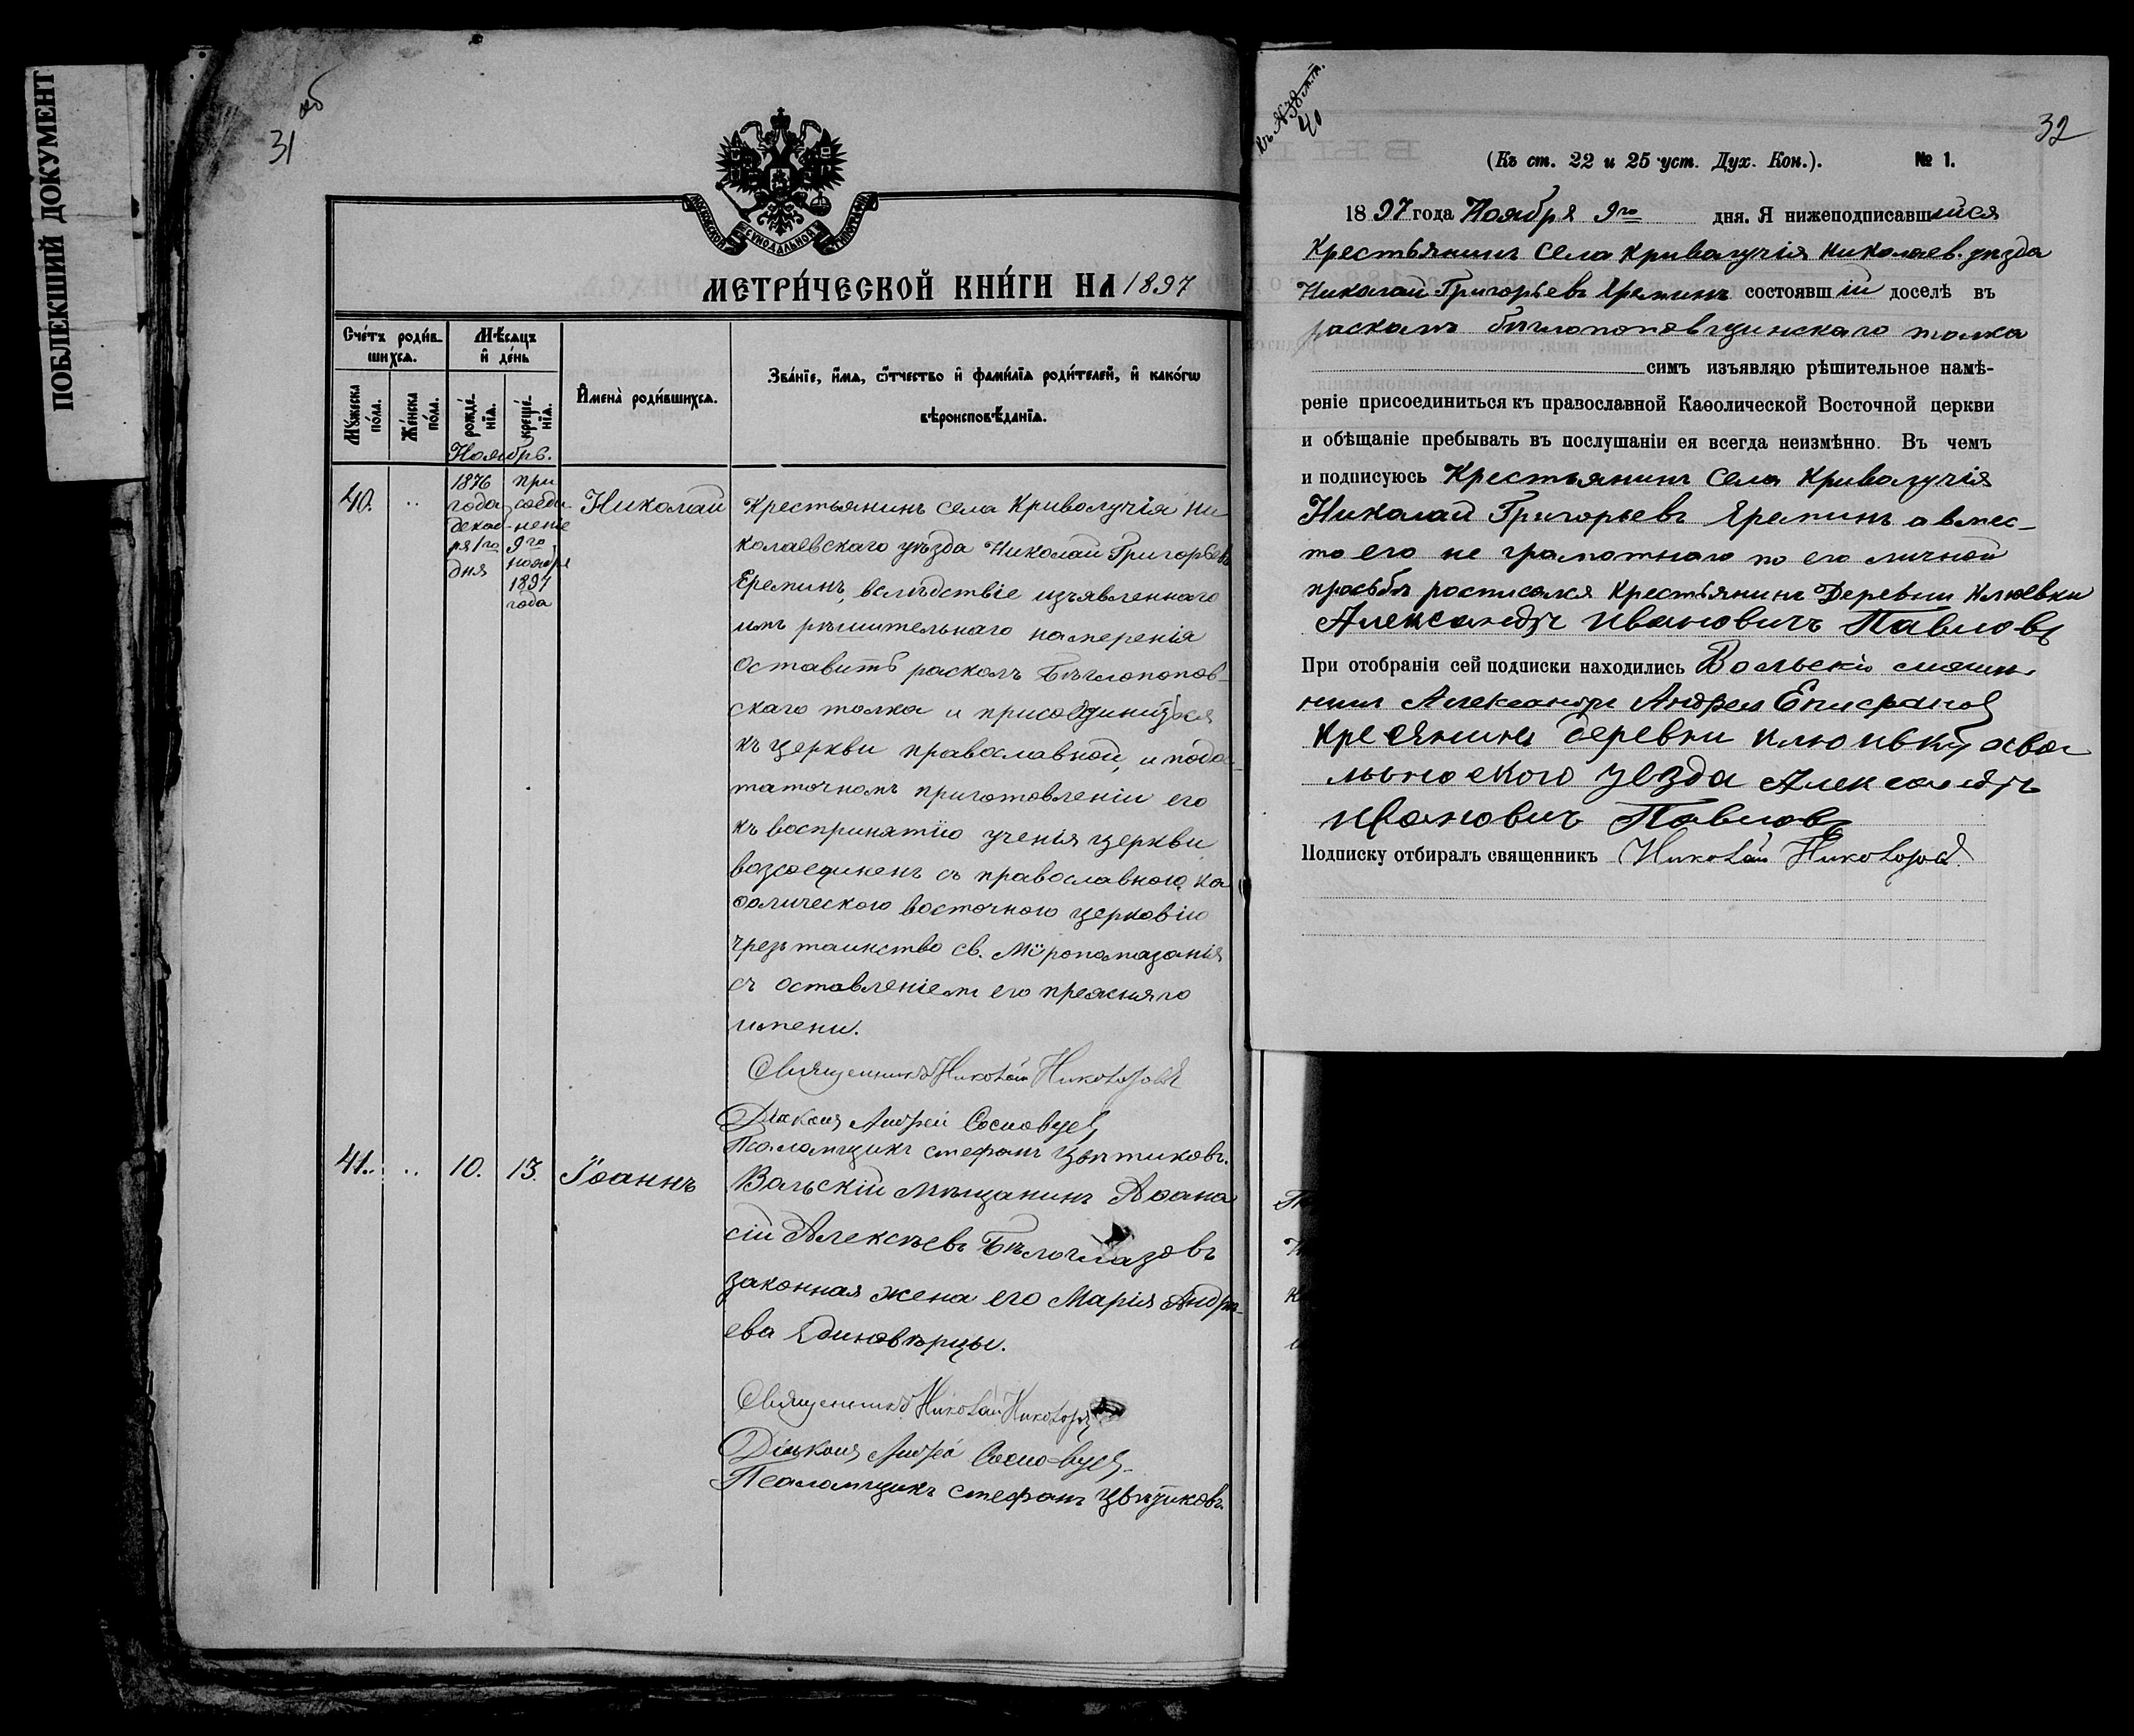 ПОБЛЕКШИЙ ДОКУМЕНТ
31 об
МОСКОВСКОЙ СѴНОДАЛЬНОЙ ТИПОГРАФІИ
МЕТРИ́ЧЕСКОЙ КНИ́ГИ НА 1897
Сче́тъ роди́в-
шихся.
Мꙋ́жеска по́ла.
Же́нска по́ла.
Мѣ́сяцъ
и҆ де́нь
рожде́нїѧ.
креще́нїѧ.
Ноябрь.
И҆мена̀ роди́вшихсѧ.
Зва́нїе, и҆́мѧ, ѻ҆́тчество и҆ фами́лїѧ роди́телей, и҆ како́гѡ
вѣроисповѣ́данїѧ.
40.
1876
года
декаб-
ря 1го
дня
при
соеди
неніе
9го
ноября
1897
года
Николай
Крестьянинъ села Криволучія Ни
колаевскаго уѣзда Николай Григорьевъ
Ереминъ, вслѣдствіе изъявленнаго
имъ рѣшительнаго намеренія
оставить расколъ Бѣглопопов-
скаго толка и присоединиться
къ церкви православной, и по дос-
таточномъ приготовленіи его
къ воспринятію ученія церкви
возсоединенъ съ православною ка
ѳолическою восточною церковію
чрезъ таинство св. Мѵропомазанія
съ оставленіемъ его прежняго
имени.
Священникъ Николай Никольскій
Діаконъ Андрей Сосновцевъ
Псаломщикъ Стефанъ Цвѣтиковъ.
41.
10.
13.
Іоаннъ
Вольскій Мѣщанинъ Аѳана
сій Алексѣевъ Бѣлоглазовъ
законная жена его Марія Андре-
ева Единовѣрцы.
Священникъ Николай
Діаконъ Андрей Сосновцевъ
Псаломщикъ Стефанъ Цвѣтиковъ.
Къ № 38 м.п.
40
32
(Къ ст. 22 и 25 уст. Дух. Кон.). № 1.
1897 года Ноября 9го дня. Я нижеподписавшийся
Крестьянинъ Села Криволучія Николаев. уѣзда
Николай Григорьевъ Яреминъ состоявшій доселѣ въ
расколѣ бѣглопоповщинскаго толка
симъ изъявляю рѣшительное намѣ-
реніе присоединиться къ православной Каѳолической Восточной церкви
и обѣщаніе пребывать въ послушаніи ея всегда неизмѣнно. Въ чемъ
и подписуюсь Крестьянинъ Села Криволучія
Николай Григорьевъ Яреминъ а вмес-
то его не грамотнаго по его личной
просьбѣ росписался Крестьянинъ Деревни Клюевки
Александръ Ивановичъ Павловъ
При отобраніи сей подписки находились Вольскій мещан
нинъ Александръ Андрея Епифановъ
Кресянинъ деревни Клюивки хва
лынского уезда Александръ
Ивановичъ Павловъ
Подписку отбиралъ священникъ Николай